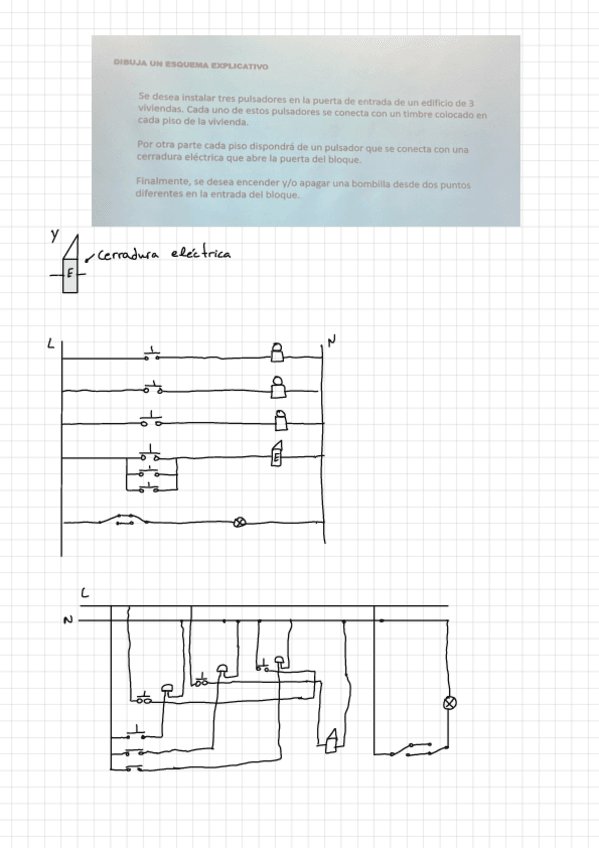 DIBUJA UN ESQUEMA EXPLICATIVO
Se desea instalar tres pulsadores en la puerta de entrada de un edificio de 3
viviendas. Cada uno de estos pulsadores se conecta con un timbre colocado en
cada piso de la vivienda.
Por otra parte cada piso dispondrá de un pulsador que se conecta con una
cerradura eléctrica que abre la puerta del bloque.
Finalmente, se desea encender y/o apagar una bombilla desde dos puntos
diferentes en la entrada del bloque.
Y
cerradura eléctrica
E
L
N
E
L
N